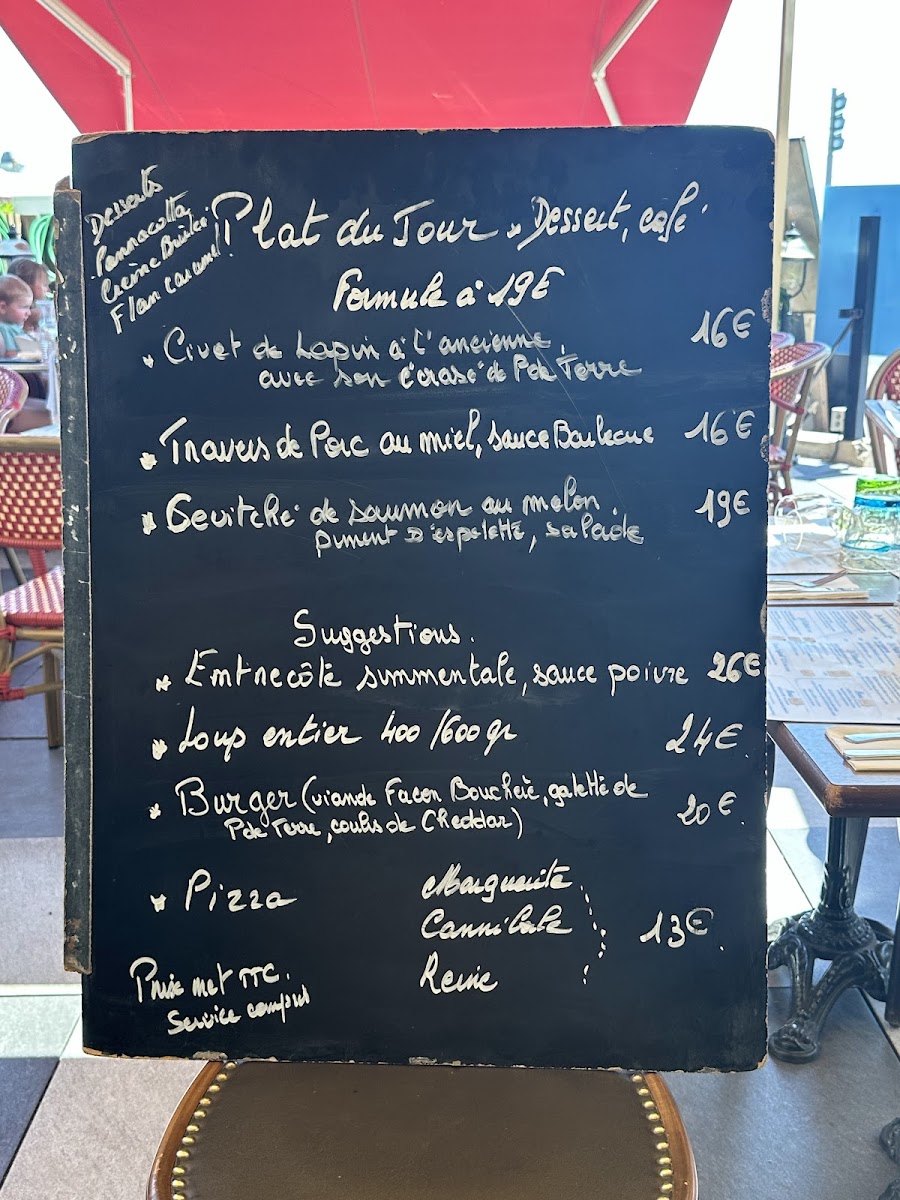 Desserts
Pannacotta
Crème Brulée
Flan caramel
Plat du Jour + Dessert, café
Formule à 19€
* Civet de Lapin à l'ancienne, 16€
avec son écrasé de P de Terre
* Travers de Porc au miel, sauce Barbecue 16€
* Cevitché de saumon au melon. 19€
piment D'espelette, salade
Suggestions.
* Entrecôte simmentale, sauce poivre 26€
* Loup entier 400/600gr 24€
* Burger (viande Facon Bouchère, galette de 20€
P de Terre, coulis de Cheddar)
* Pizza Marguerite
Cannibale 13€
Reine
Prix net TTC.
Service compris